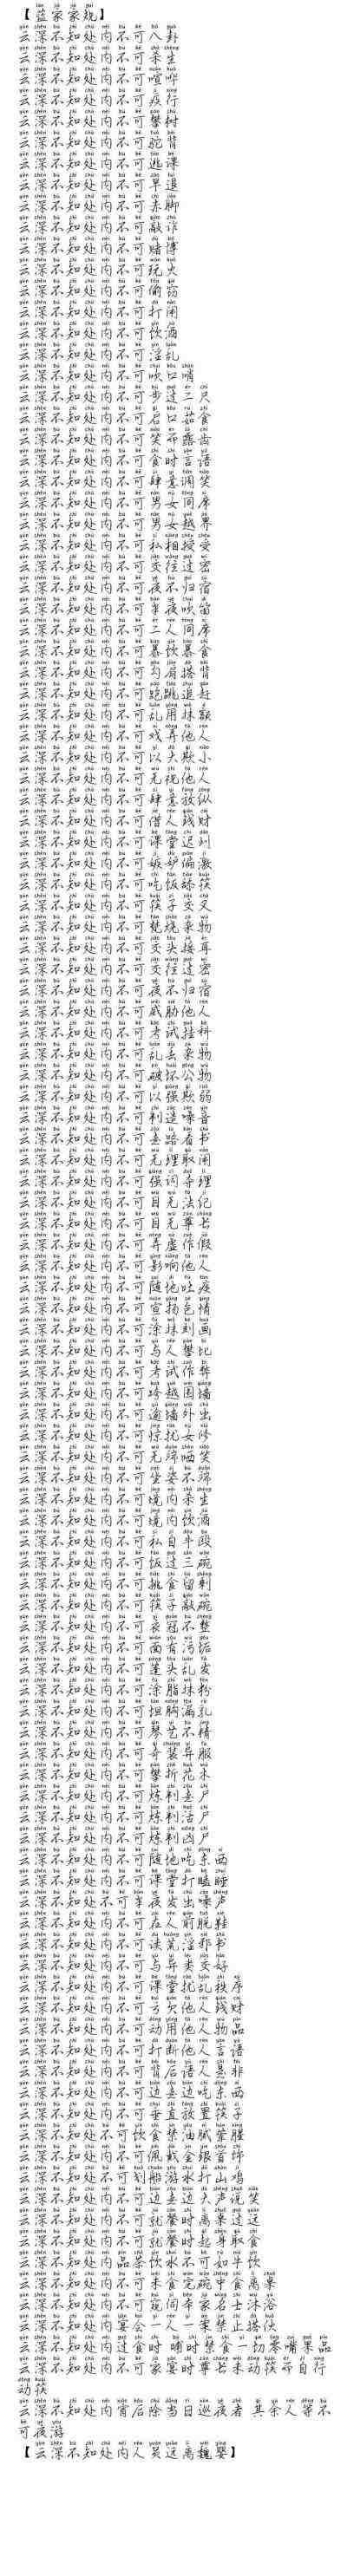 【蓝家家规】
云深不知处内不可八卦
云深不知处内不可杀生
云深不知处内不可喧哗
云深不知处内不可疾行
云深不知处内不可攀树
云深不知处内不可驼背
云深不知处内不可逃课
云深不知处内不可早退
云深不知处内不可赤脚
云深不知处内不可敲诈
云深不知处内不可赌博
云深不知处内不可玩火
云深不知处内不可偷窃
云深不知处内不可打闹
云深不知处内不可饮酒
云深不知处内不可淫乱
云深不知处内不可吹口哨
云深不知处内不可步过二尺
云深不知处内不可启口茹食
云深不知处内不可笑而露齿
云深不知处内不可食时言语
云深不知处内不可肆意调笑
云深不知处内不可男女同席
云深不知处内不可男女越界
云深不知处内不可私相授受
云深不知处内不可交往过密
云深不知处内不可夜不归宿
云深不知处内不可半夜吹笛
云深不知处内不可二人同席
云深不知处内不可暴饮暴食
云深不知处内不可勾肩搭背
云深不知处内不可跑跳追赶
云深不知处内不可乱用抹额
云深不知处内不可戏弄他人
云深不知处内不可以大欺小
云深不知处内不可无视他人
云深不知处内不可肆意放纵
云深不知处内不可借人钱财
云深不知处内不可课堂迟到
云深不知处内不可嫉妒偏激
云深不知处内不可吃饭舔筷
云深不知处内不可筷子交叉
云深不知处内不可焚烧杂物
云深不知处内不可交头接耳
云深不知处内不可交往过密
云深不知处内不可夜不归宿
云深不知处内不可威胁他人
云深不知处内不可考试挂科
云深不知处内不可乱丢杂物
云深不知处内不可破坏公物
云深不知处内不可以强欺弱
云深不知处内不可制造噪音
云深不知处内不可走路看书
云深不知处内不可无理取闹
云深不知处内不可强词夺理
云深不知处内不可目无法纪
云深不知处内不可目无尊长
云深不知处内不可弄虚作假
云深不知处内不可影响他人
云深不知处内不可随地吐痰
云深不知处内不可宣扬色情
云深不知处内不可涂抹刻画
云深不知处内不可与人攀比
云深不知处内不可考试作弊
云深不知处内不可跨越围墙
云深不知处内不可逾墙外出
云深不知处内不可惊扰女修
云深不知处内不可无端哂笑
云深不知处内不可坐姿不端
云深不知处内不可境内杀生
云深不知处内不可境内饮酒
云深不知处内不可私自斗殴
云深不知处内不可饭过三碗
云深不知处内不可挑食留剩
云深不知处内不可筷子敲碗
云深不知处内不可衣冠不整
云深不知处内不可面有污垢
云深不知处内不可蓬头乱发
云深不知处内不可涂脂抹粉
云深不知处内不可坦胸漏乳
云深不知处内不可琴艺不精
云深不知处内不可奇装异服
云深不知处内不可攀折花木
云深不知处内不可炼制走尸
云深不知处内不可炼制活尸
云深不知处内不可炼制凶尸
云深不知处内不可随地吃东西
云深不知处内不可课堂打瞌睡
云深不知处不可半夜发出噪声
云深不知处内不可在人前脱鞋
云深不知处内不可读荒淫邪书
云深不知处内不可与异类交好
云深不知处内不可课堂扰乱秩序
云深不知处内不可亏欠他人钱财
云深不知处内不可动用他人物品
云深不知处内不可打断他人言语
云深不知处内不可背后语人是非
云深不知处内不可边走边吃东西
云深不知处内不可垂直放置筷子
云深不知处不可饮食禁油腻荤腥
云深不知处内不可佩戴金银首饰
云深不知处不可划船游水打山鸡
云深不知处内不可边走边大声说笑
云深不知处内不可就餐时离桌过远
云深不知处内不可就餐时起身取食
云深不知处内品茶饮水不可如牛饮
云深不知处内不可未食完碗中食离桌
云深不知处内不可窥伺本家名士沐浴
云深不知处内宴会一人一桌禁止搭伙
云深不知处内过食时 晡时禁食一切零嘴果品
云深不知处内不可家宴时尊长未动筷而自行
动筷
云深不知处内宵后除当日巡夜者 其余人等不
可夜游
【云深不知处内人员远离魏婴】